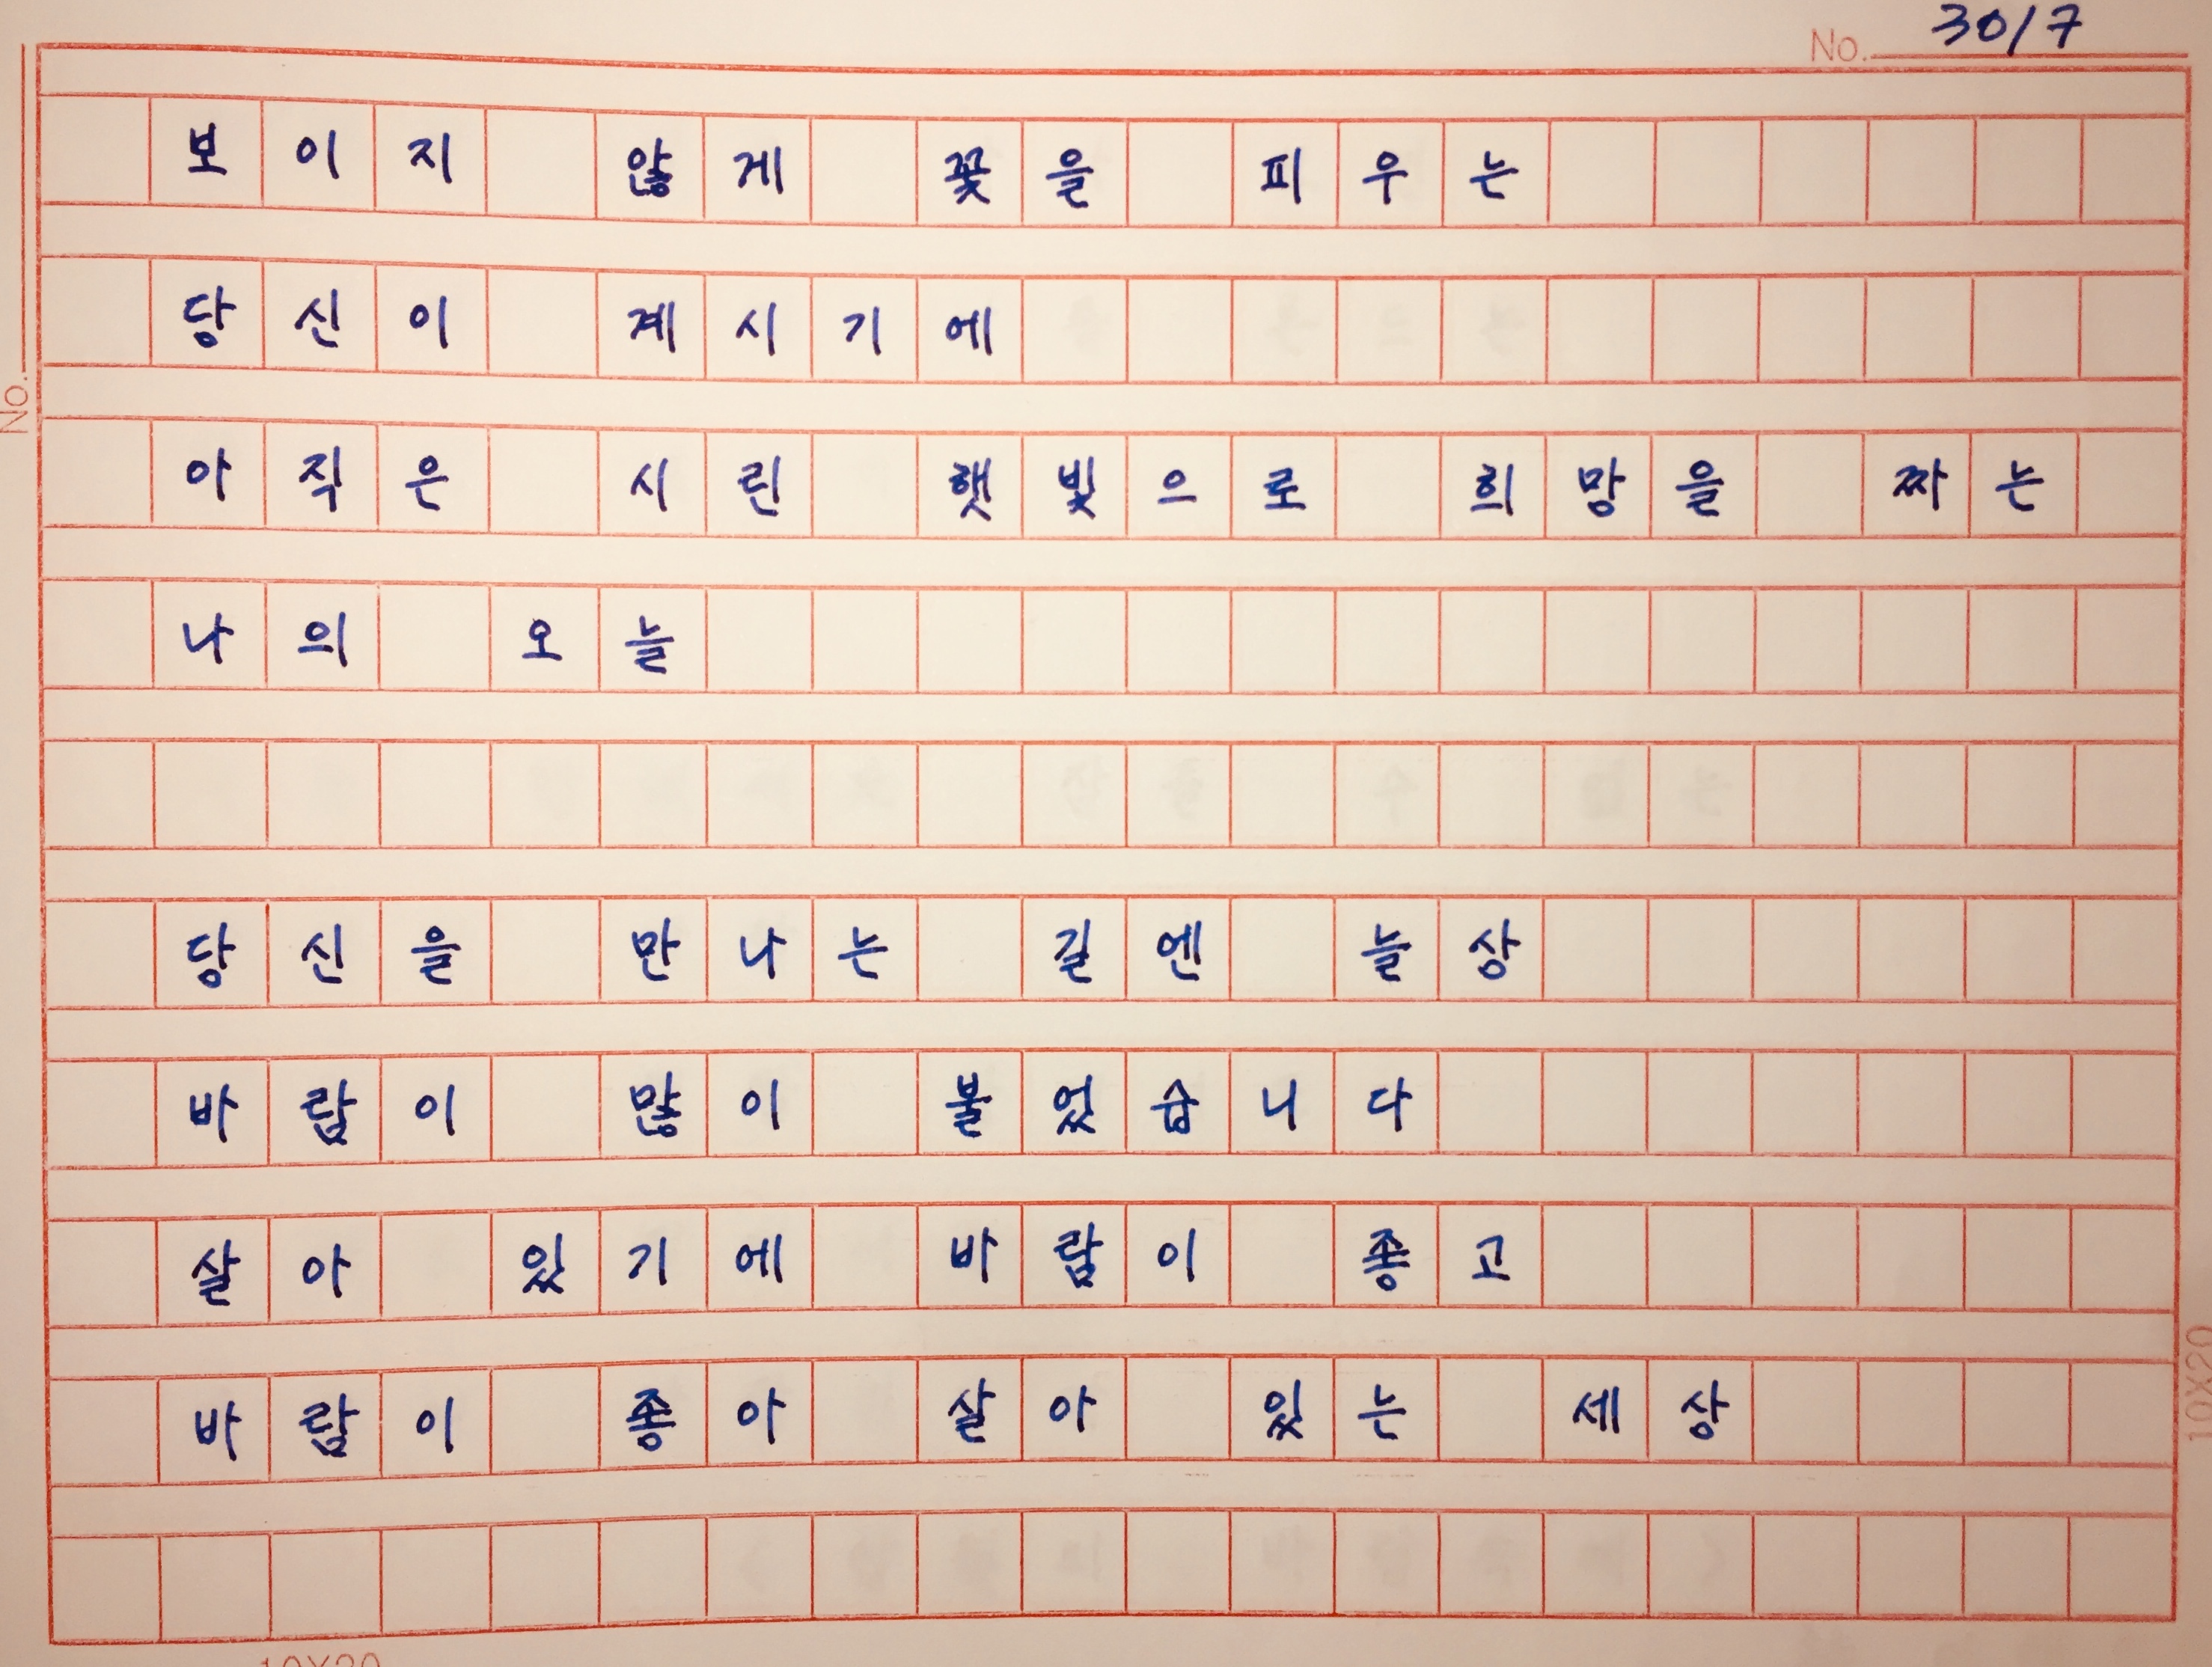 No. 30/7
보이지 않게 꽃을 피우는
당신이 계시기에
No.
아직은 시린 햇빛으로 희망을 짜는
나의 오늘
당신을 만나는 길엔 늘상
바람이 많이 불었습니다
살아 있기에 바람이 좋고
바람이 좋아 살아 있는 세상
10X20
10X20